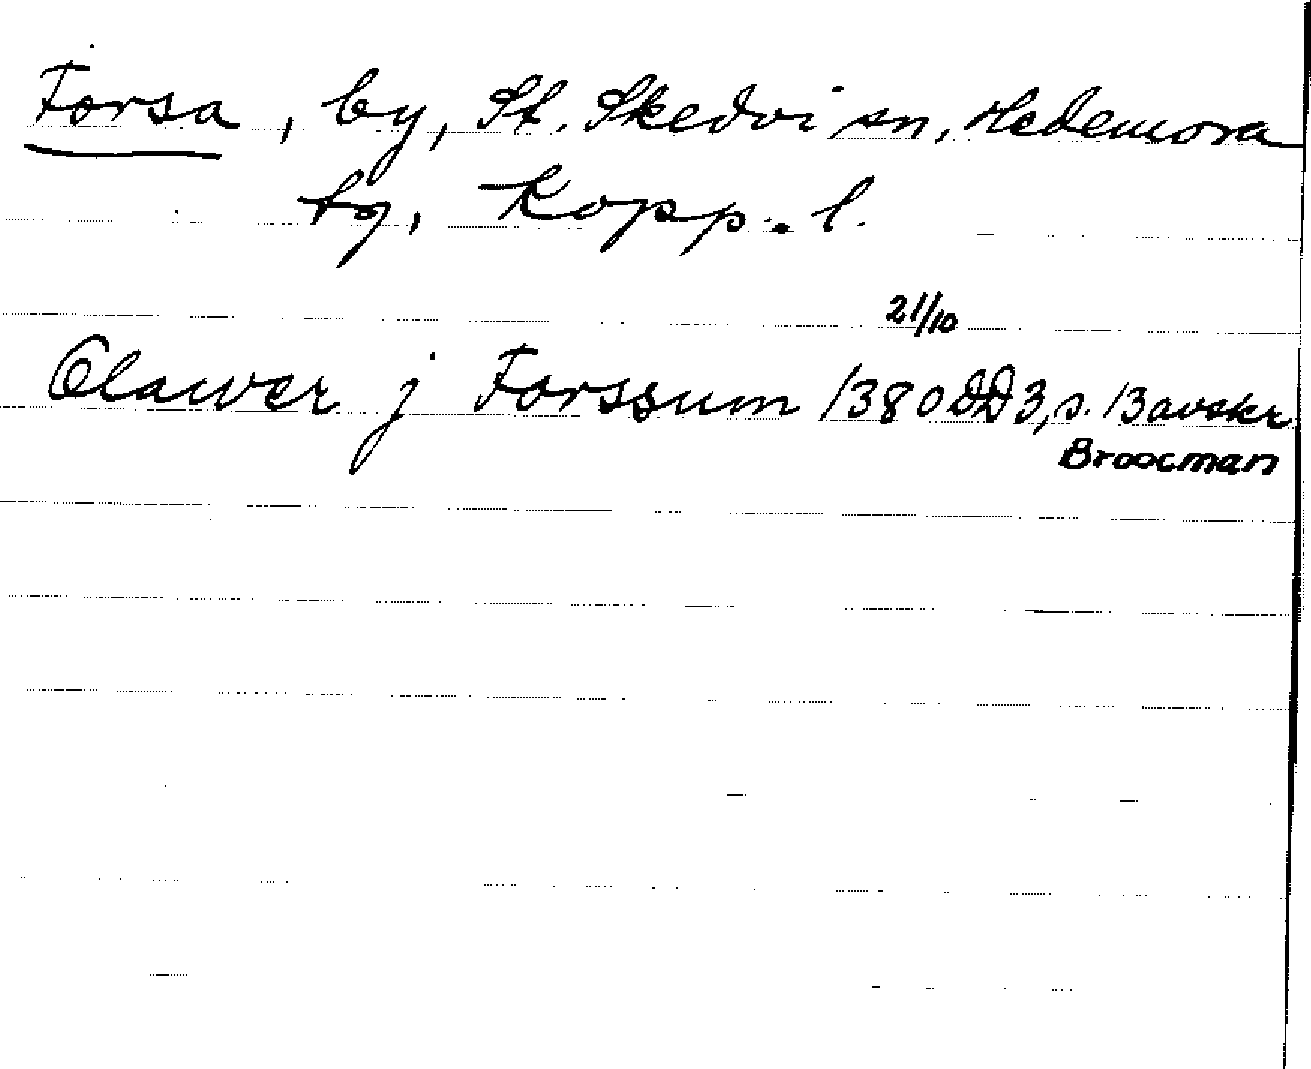 Forsa, by, St. Skedvi sn, Hedemora
tg, Kopp. l.
21/10
Olawer j Forssum 1380 DD3, s. 13 avskr
Broocman